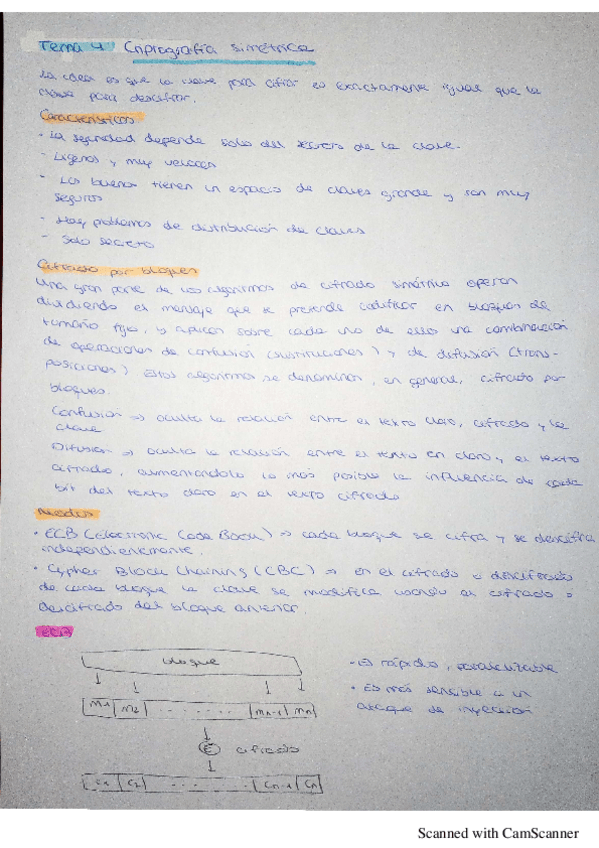 Tema 4 Criptografía simétrica
La idea es que la clave para cifrar es exactamente igual que la
clave para descifrar.
Características
- La seguridad depende solo del secreto de la clave.
- Ligeros y muy veloces
- Los buenos tienen un espacio de claves grande y son muy
seguros
- Hay problemas de distribución de claves
- Solo secreto
Cifrado por bloques
Una gran parte de los algoritmos de cifrado simétrico operan
dividiendo el mensaje que se pretende codificar en bloques de
tamaño fijo, y aplican sobre cada uno de ellos una combinación
de operaciones de confusión (sustituciones) y de difusión (trans-
posiciones) Estos algoritmos se denominan, en general, cifrado por
bloques.
Confusión => oculta la relación entre el texto claro, cifrado y la
clave
Difusión => oculta la relación entre el texto en claro y el texto
cifrado, aumentandolo lo más posible la influencia de cada
bit del texto claro en el texto cifrado
Modos
• ECB (Electronic Code Book) => cada bloque se cifra y se descifra
independientemente.
• Cypher Block Chaining (CBC) => en el cifrado o descifrado
de cada bloque la clave se modifica usando el cifrado o
descifrado del bloque anterior.
ECB
bloque
- Es rápido, paralelizable
• Es más sensible a un
ataque de inyección
m1 m2 ....... mn-1 mn
E cifrado
c1 c2 ....... cn-1 cn
Scanned with CamScanner